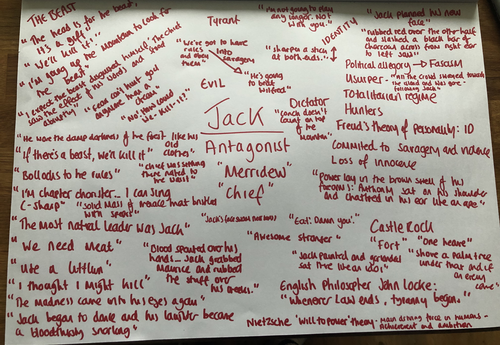 THE BEAST
"The head is for the beast.
It's a gift."
"We'll kill it!"
"I'm going up the mountain to look for
the beast"
"I expect the beast disguised himself." The chief
saw the effect of his words and stood
abruptly
"Fear can't hurt you
anymore than a
dream."
"No! How could
we - kill - it?"
Tyrant
"We've got to have
rules and obey
them"
into
savagery
EVIL
"He's going
to beat
Wilfred"
"I'm not going to play
any longer. Not
with you."
IDENTITY
"sharpen a stick
at both ends."
Dictator
"conch doesn't
count on top
of the
mountain"
"Jack planned his new
face"
"rubbed red over the other half
and slashed a black bar of
charcoal across from right ear
to left jaw"
Political allegory → Fascism
Usurper - "All the crowd swayed toward
Totalitarian regime
Hunters
Freud's theory of personality: ID
Committed to savagery and violence
Loss of innocence
"Power lay in the brown swell of his
forearms: Authority sat on his shoulder
and chattered in his ear like an ape"
Jack
Antagonist
"Merridew"
"Chief"
"He wore the damp darkness of the forest like his
old
clothes"
"If there's a beast, we'll kill it"
"Bollocks to the rules"
"Chief was sitting
there naked to
the waist"
"I'm chapter chorister... I can sing
C-sharp"
"solid mass of menace that bristled
with spears"
"The most natural leader was Jack"
"We need meat"
"Use a littlun"
"I thought I might kill"
"The madness came into his eyes again"
"Jack began to dance and his laughter became
a bloodthirsty snarling"
"Blood spouted over his
hands... Jack grabbed
Maurice and rubbed
the stuff over
his cheeks."
"Eat! Damn you."
"Awesome stranger"
"Jack painted and garlanded
sat there like an idol"
Castle Rock
"Fort"
"One heave"
"shove a palm tree
under that and if
an enemy
came"
English Philosopher John Locke:
"Whenever law ends, tyranny begins."
Nietzsche 'Will to power' theory - Main driving force in humans -
achievement and ambition